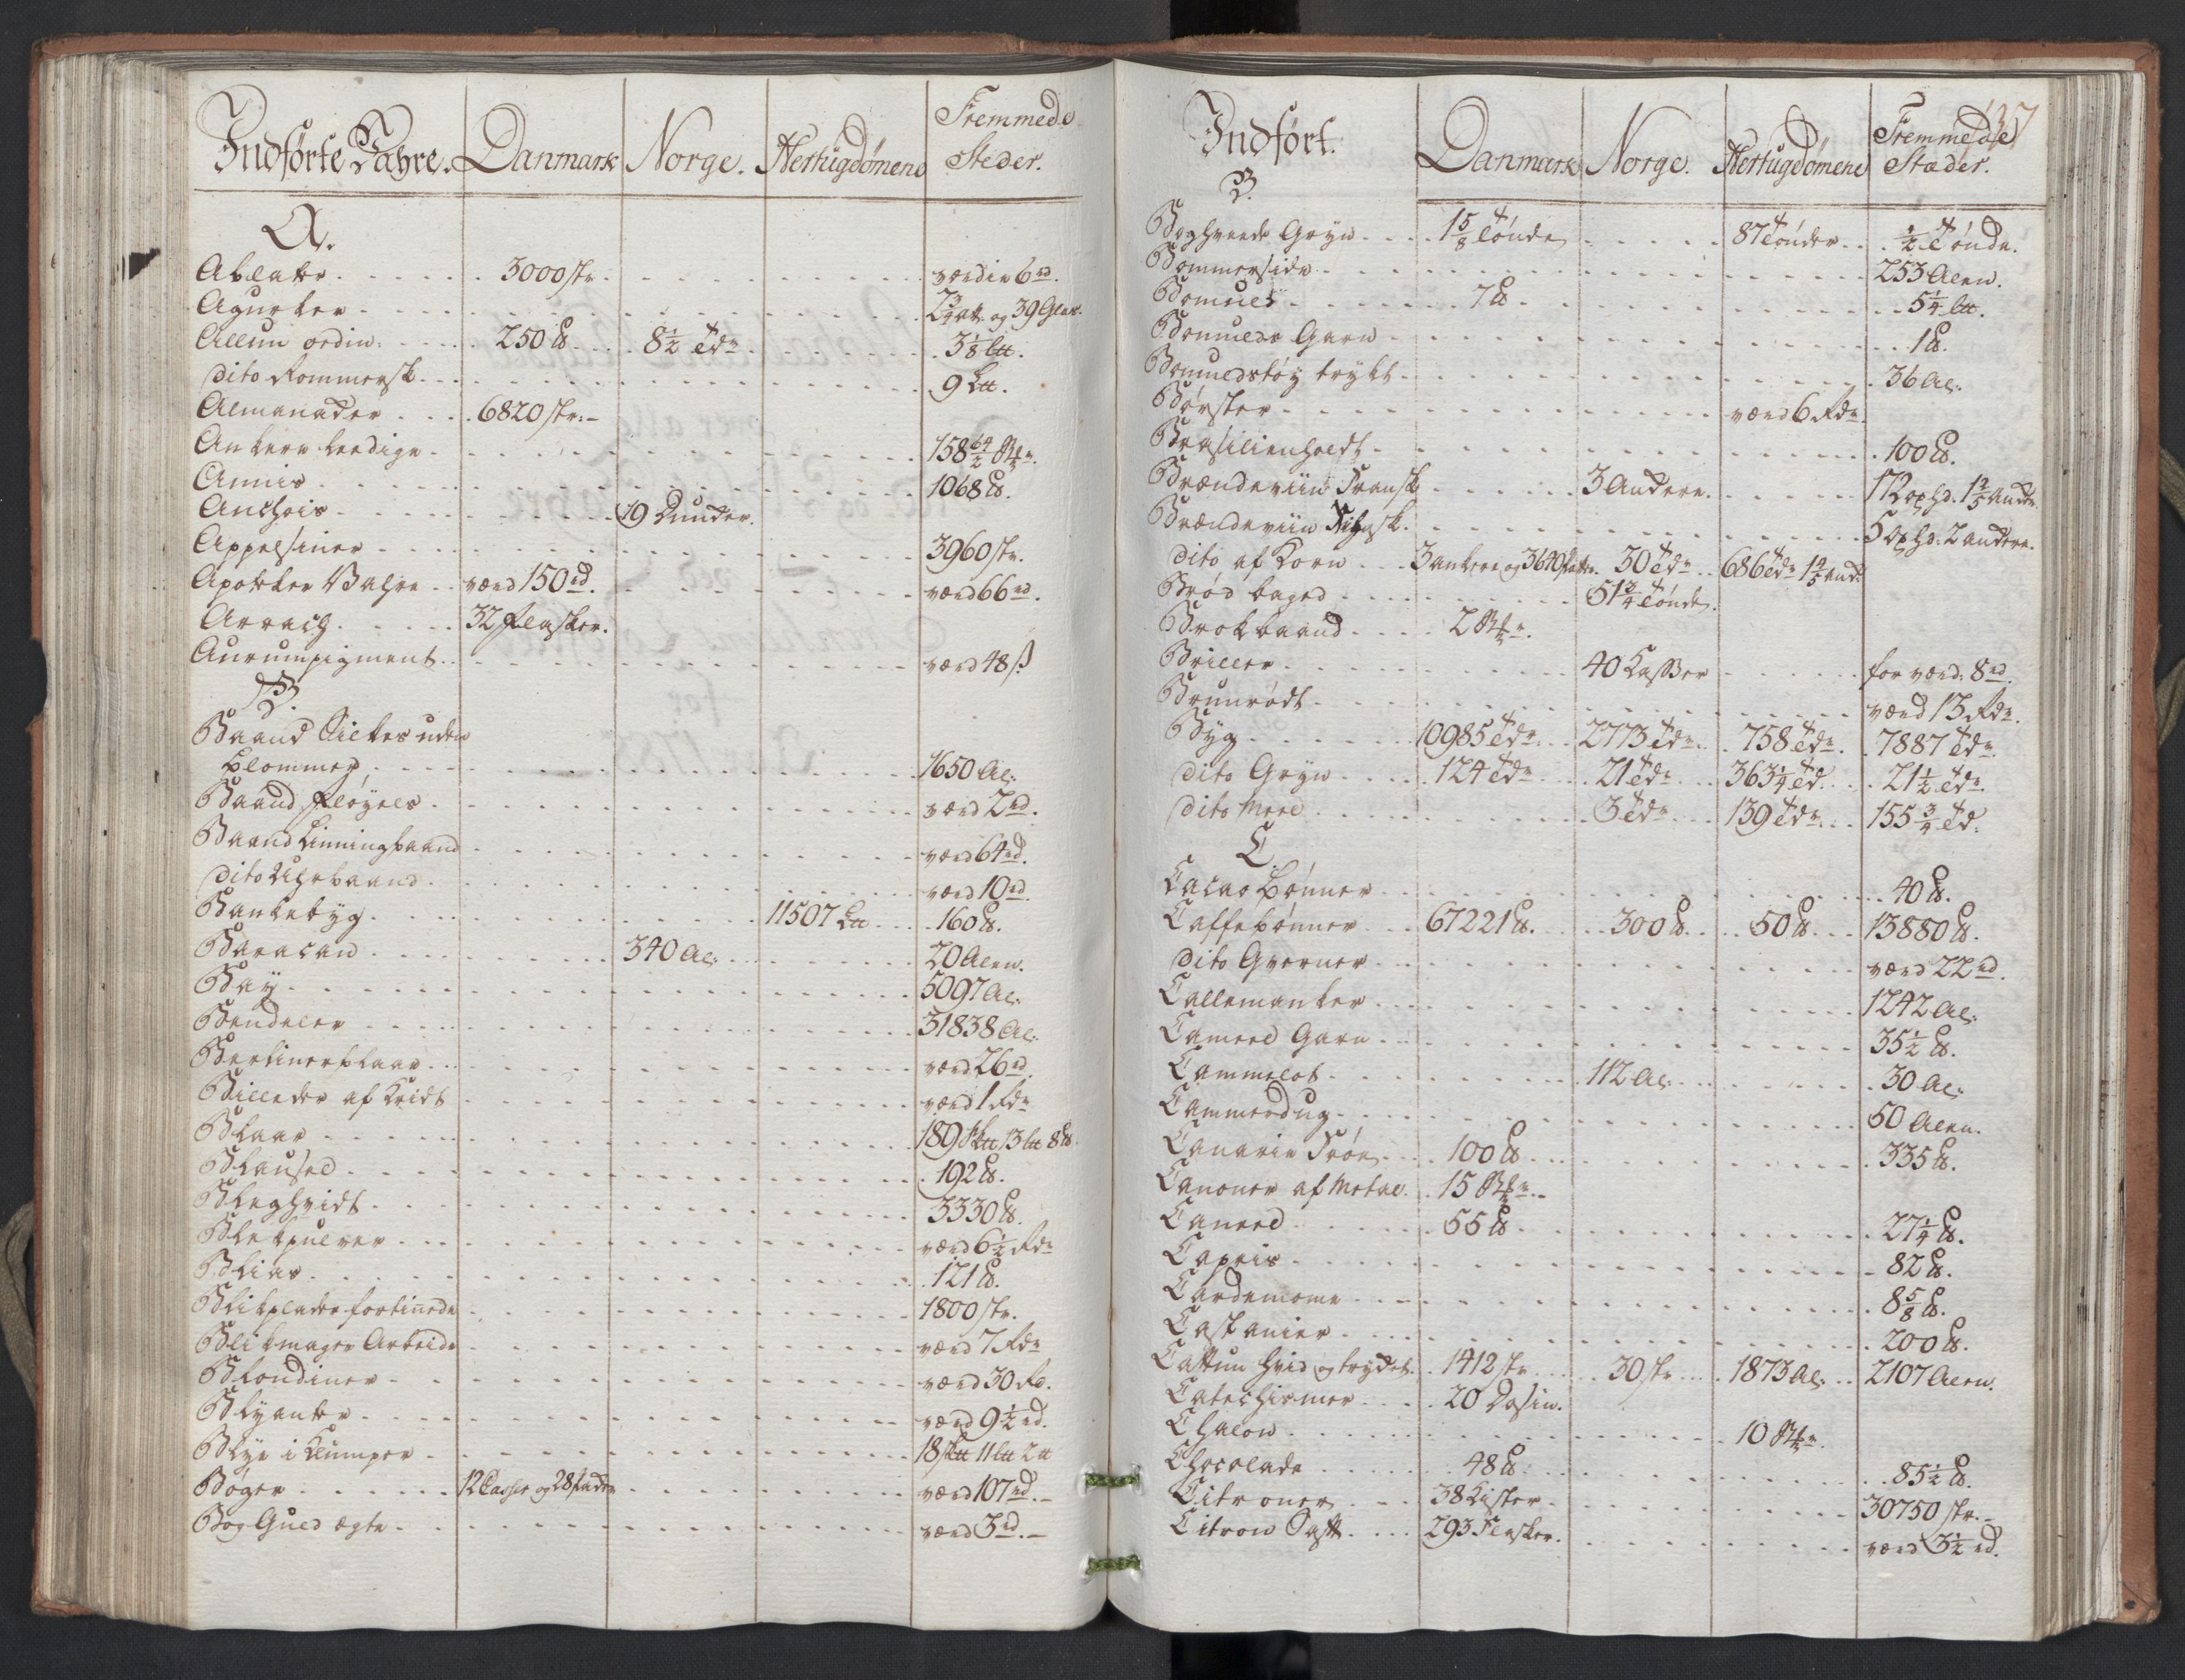 Indførte Vahre. Danmark Norge. Hertugdømene Fremmede Steder.
A.
Ablater 3000 str. værdie 6 rd.
Agurker og 39 Glas.
Allun ordin: 250 ℔. 8½ Tdr 3⅛ L℔.
dito Rommersk 9 L℔.
Almanacker 6820 str:
Ankere leedige
Annis 1068 ℔.
Anchois 19 Dunder.
Appelsiner 3960 str.
Apoteker Vahre værd 150 rd. værd 66 rd.
Arrach 32 flasker.
Aurumpigment værd 48 ß
B.
Baand Silkes uden
blommer 1650 Al:
Baand fløyels værd 2 rd.
Baand Linningbaand værd 64 rd.
dito Uhrbaand værd 10 rd.
Bankebyg 11507 L℔ 160 ℔.
Baracan 340 Al: 20 Alen.
Bay 5097 Al:
Bendeler 31838 Al:
Berlinerblaae værd 26 rd.
Billeder af Kridt værd 1 Rdr
Blaar 189 Sk℔ 13 L℔ 8 ℔.
192 ℔.
Bleghvidt 3330 ℔.
Blekpulver værd 6½ Rdr
Bliar 121 ℔.
Blikplader fortinnede 1800 str.
Blikmager Arbeide værd 7 Rdr
Blondiner værd 30 Rd.
Blyanter værd 9½ rd.
Blye i Klumper 18 Sk℔ 11 L℔ 2 ℔
Bøger 12 Casser og 28 Pakker værd 107 rd.
Bog Guld ægte værd 3 rd.
137
Indført. Danmark Norge. Hertugdømene Fremmede Stæder.
B.
Boghvede Gryn 1⅝ Tønde 87 Tønder ½ Tønde.
Bommerside 253 Alen.
Bomuld 7 ℔. 5¼ L℔.
Bomulds Garn 1 ℔.
Bomuldstøy trykt 36 Al:
Børster værd 6 Rdr
Brasilienholdt 100 ℔.
Brændeviin Fransk 3 Ankere. 112 oxhd.
Brændeviin 5 oxhd: 2 ankere.
dito af Korn 3 ankere og 3640 Potter. 30 Tdr 686 Tdr
Brød baged 51¾ Tønde.
Brokbaand 2 Stkr.
Briller 40 Kasser for værd: 8 rd.
Brunrødt værd 13 Rdr.
Byg 10985 Tdr 2773 Tdr 758 Tdr. 7887 Tdr.
dito Gryn 124 Tdr 21 Tdr 363¼ Td. 21½ Tdr.
dito Meel 3 Tdr 139 Tdr 155¾ Td.
C.
Cacao bønner 40 ℔.
Caffebønner 67221 ℔. 300 ℔. 50 ℔. 13880 ℔.
dito Qverner værd 22 rd.
Callemanker 1242 Al:
Cameel Garn 35½ ℔.
Cammelot 112 Al: 30 Al:
Cammerdug 50 Alen.
Canarie Frøe 100 ℔. 335 ℔.
Canoner af Metal. 15 Stkr.
Caneel 55 ℔. 27¼ ℔.
Capris 82 ℔.
Cardemome 8⅝ ℔.
Castanier 200 ℔.
Cattun hvid og trykt 1412 str 30 str 1873 Al: 2107 Alen.
Catechismer 20 Dosin.
Chalon 10 Stkr.
Chocolade 48 ℔. 85½ ℔.
Citroner 38 Kister 30750 str.
Citron Saft 293 Flasker. værd 3½ rd.